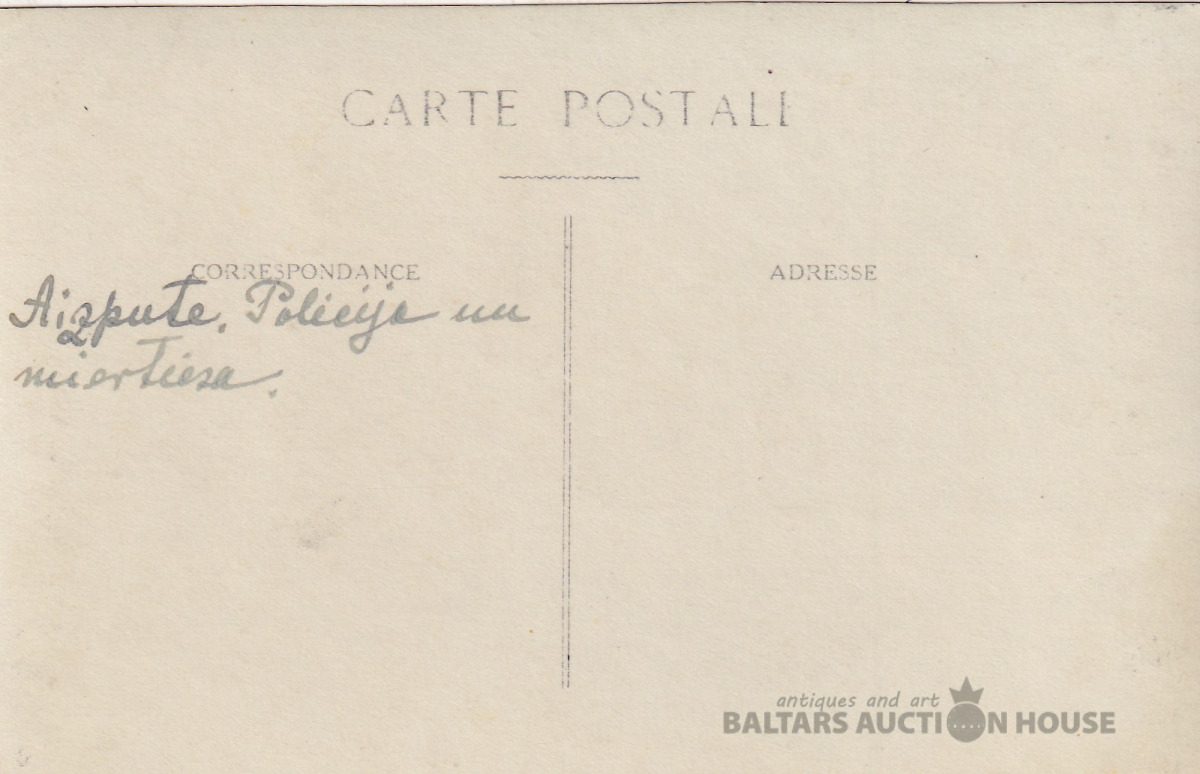 CARTE POSTALE
CORRESPONDANCE
ADRESSE
Aizpute. Policija un
miertiesa.
antiques and art
BALTARS AUCTION HOUSE